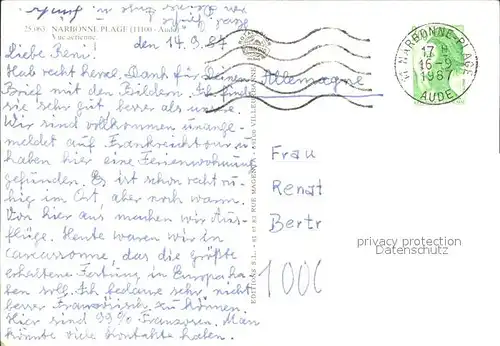 25.063. NARBONNE PLAGE (11100 - Aude)
Vue aérienne.
den 14.9.87
Liebe Reni!
Hab recht herzl. Dank für Deinen
Brief mit den Bildern. Ich finde
sie sehr gut, besser als unsre.
Wir sind vollkommen unange-
meldet auf Frankreich
haben hier eine Ferienwohnung
gefunden. Es ist schon recht ru-
hig im Ort, aber noch warm.
Von hier aus machen wir Aus-
flüge. Heute waren wir in
Carcassonne, das die größte
erhaltene Festung in Europa ha-
ben soll. Ich bedaure sehr, nicht
besser Französisch zu können.
Hier sind 99% Franzosen. Man
könnte viele Kontakte haben.
11 NARBONNE-PLAGE
17 H
16-9
1987
AUDE
Allemagne
Frau
Renat
Bertr
1000
privacy protection
Datenschutz